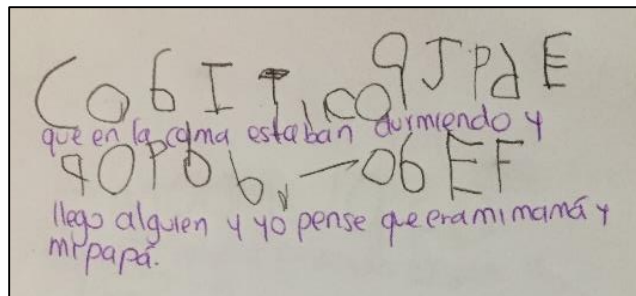 CobIT,coqJPdE
que en la cama estaban durmiendo y
qOPbb, obEF
llego alguien y yo pense que era mi mamá y
mi papá.